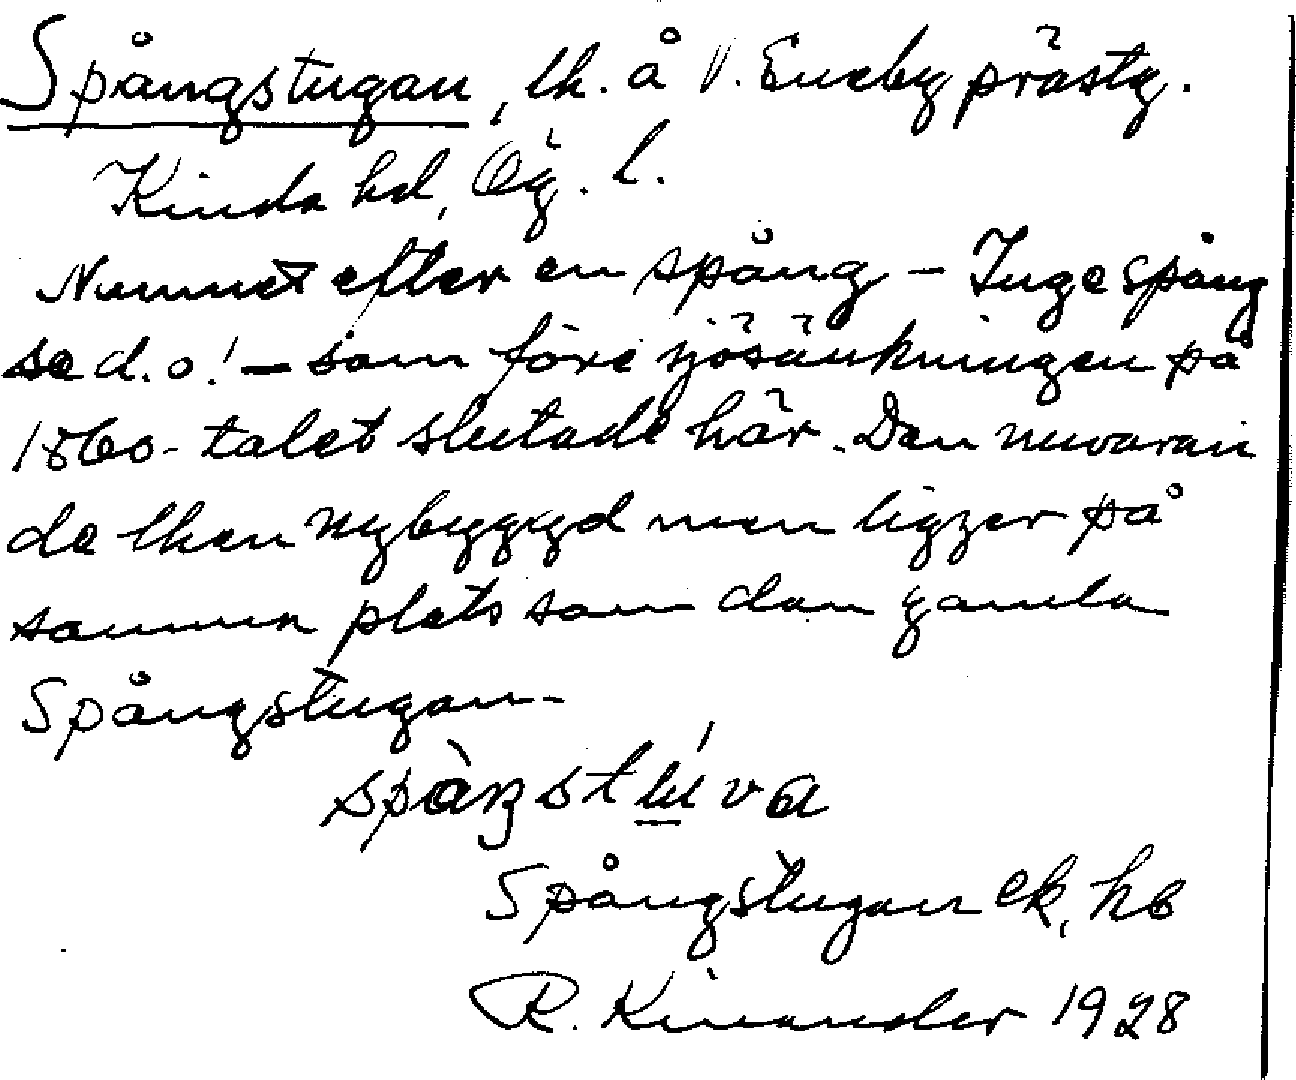 Spångstugan, lh. å V. Eneby prästg.
Kinda hd, Ög. l.
Namnet efter en spång – Ingespång
se d.o! – som före sjösänkningen på
1860-talet slutade här. Den nuvaran
de lhen nybyggd men ligger på
samma plats som den gamla
Spångstugan.
spàŋstúva
Spångstugan ek, hb
R. Kinander 1928